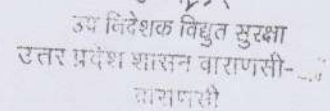 उप निदेशक विद्युत सुरक्षा
उत्तर प्रदेश शासन वाराणसी-
वाराणसी